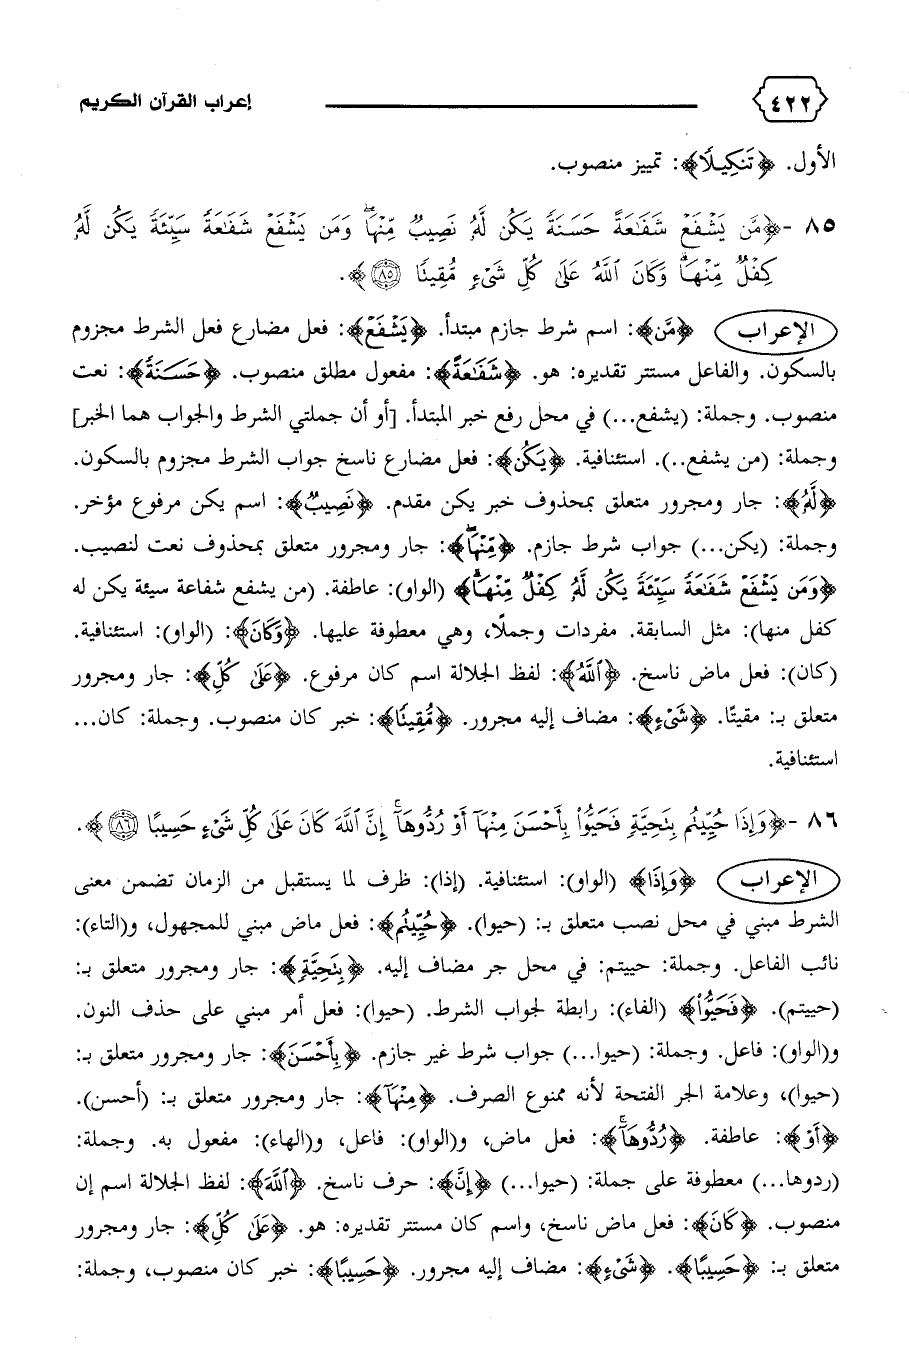 ٤٢٢ إعراب القرآن الكريم
الأول. ﴿تَنكِيلًا﴾: تمييز منصوب.
٨٥ -﴿مَّن يَشْفَعْ شَفَٰعَةً حَسَنَةً يَكُن لَّهُۥ نَصِيبٌ مِّنْهَا ۖ وَمَن يَشْفَعْ شَفَٰعَةً سَيِّئَةً يَكُن لَّهُۥ
كِفْلٌ مِّنْهَا ۗ وَكَانَ ٱللَّهُ عَلَىٰ كُلِّ شَىْءٍ مُّقِيتًا ﴿٨٥﴾﴾.
الإعراب ﴿مَّن﴾: اسم شرط جازم مبتدأ. ﴿يَشْفَعْ﴾: فعل مضارع فعل الشرط مجزوم
بالسكون. والفاعل مستتر تقديره: هو. ﴿شَفَٰعَةً﴾: مفعول مطلق منصوب. ﴿حَسَنَةً﴾: نعت
منصوب. وجملة: (يشفع...) في محل رفع خبر المبتدأ. [أو أن جملتي الشرط والجواب هما الخبر]
وجملة: (من يشفع..). استئنافية. ﴿يَكُن﴾: فعل مضارع ناسخ جواب الشرط مجزوم بالسكون.
﴿لَّهُۥ﴾: جار ومجرور متعلق بمحذوف خبر يكن مقدم. ﴿نَصِيبٌ﴾: اسم يكن مرفوع مؤخر.
وجملة: (يكن...) جواب شرط جازم. ﴿مِّنْهَا ۖ﴾: جار ومجرور متعلق بمحذوف نعت لنصيب.
﴿وَمَن يَشْفَعْ شَفَٰعَةً سَيِّئَةً يَكُن لَّهُۥ كِفْلٌ مِّنْهَا ۗ﴾ (الواو): عاطفة. (من يشفع شفاعة سيئة يكن له
كفل منها): مثل السابقة. مفردات وجملًا، وهي معطوفة عليها. ﴿وَكَانَ﴾: (الواو): استئنافية.
(كان): فعل ماض ناسخ. ﴿ٱللَّهُ﴾: لفظ الجلالة اسم كان مرفوع. ﴿عَلَىٰ كُلِّ﴾: جار ومجرور
متعلق بـ: مقيتًا. ﴿شَىْءٍ﴾: مضاف إليه مجرور. ﴿مُّقِيتًا﴾: خبر كان منصوب. وجملة: كان...
استئنافية.
٨٦ -﴿وَإِذَا حُيِّيتُم بِتَحِيَّةٍ فَحَيُّوا۟ بِأَحْسَنَ مِنْهَآ أَوْ رُدُّوهَآ ۗ إِنَّ ٱللَّهَ كَانَ عَلَىٰ كُلِّ شَىْءٍ حَسِيبًا ﴿٨٦﴾﴾.
الإعراب ﴿وَإِذَا﴾ (الواو): استئنافية. (إذا): ظرف لما يستقبل من الزمان تضمن معنى
الشرط مبني في محل نصب متعلق بـ: (حيوا). ﴿حُيِّيتُم﴾: فعل ماض مبني للمجهول، و(التاء):
نائب الفاعل. وجملة: حييتم: في محل جر مضاف إليه. ﴿بِتَحِيَّةٍ﴾: جار ومجرور متعلق بـ:
(حييتم). ﴿فَحَيُّوا۟﴾ (الفاء): رابطة لجواب الشرط. (حيوا): فعل أمر مبني على حذف النون.
و(الواو): فاعل. وجملة: (حيوا...) جواب شرط غير جازم. ﴿بِأَحْسَنَ﴾: جار ومجرور متعلق بـ:
(حيوا)، وعلامة الجر الفتحة لأنه ممنوع الصرف. ﴿مِنْهَآ﴾: جار ومجرور متعلق بـ: (أحسن).
﴿أَوْ﴾: عاطفة. ﴿رُدُّوهَآ ۗ﴾: فعل ماض، و(الواو): فاعل، و(الهاء): مفعول به. وجملة:
(ردوها...) معطوفة على جملة: (حيوا...) ﴿إِنَّ﴾: حرف ناسخ. ﴿ٱللَّهَ﴾: لفظ الجلالة اسم إن
منصوب. ﴿كَانَ﴾: فعل ماض ناسخ، واسم كان مستتر تقديره: هو. ﴿عَلَىٰ كُلِّ﴾: جار ومجرور
متعلق بـ: ﴿حَسِيبًا﴾. ﴿شَىْءٍ﴾: مضاف إليه مجرور. ﴿حَسِيبًا﴾: خبر كان منصوب، وجملة: